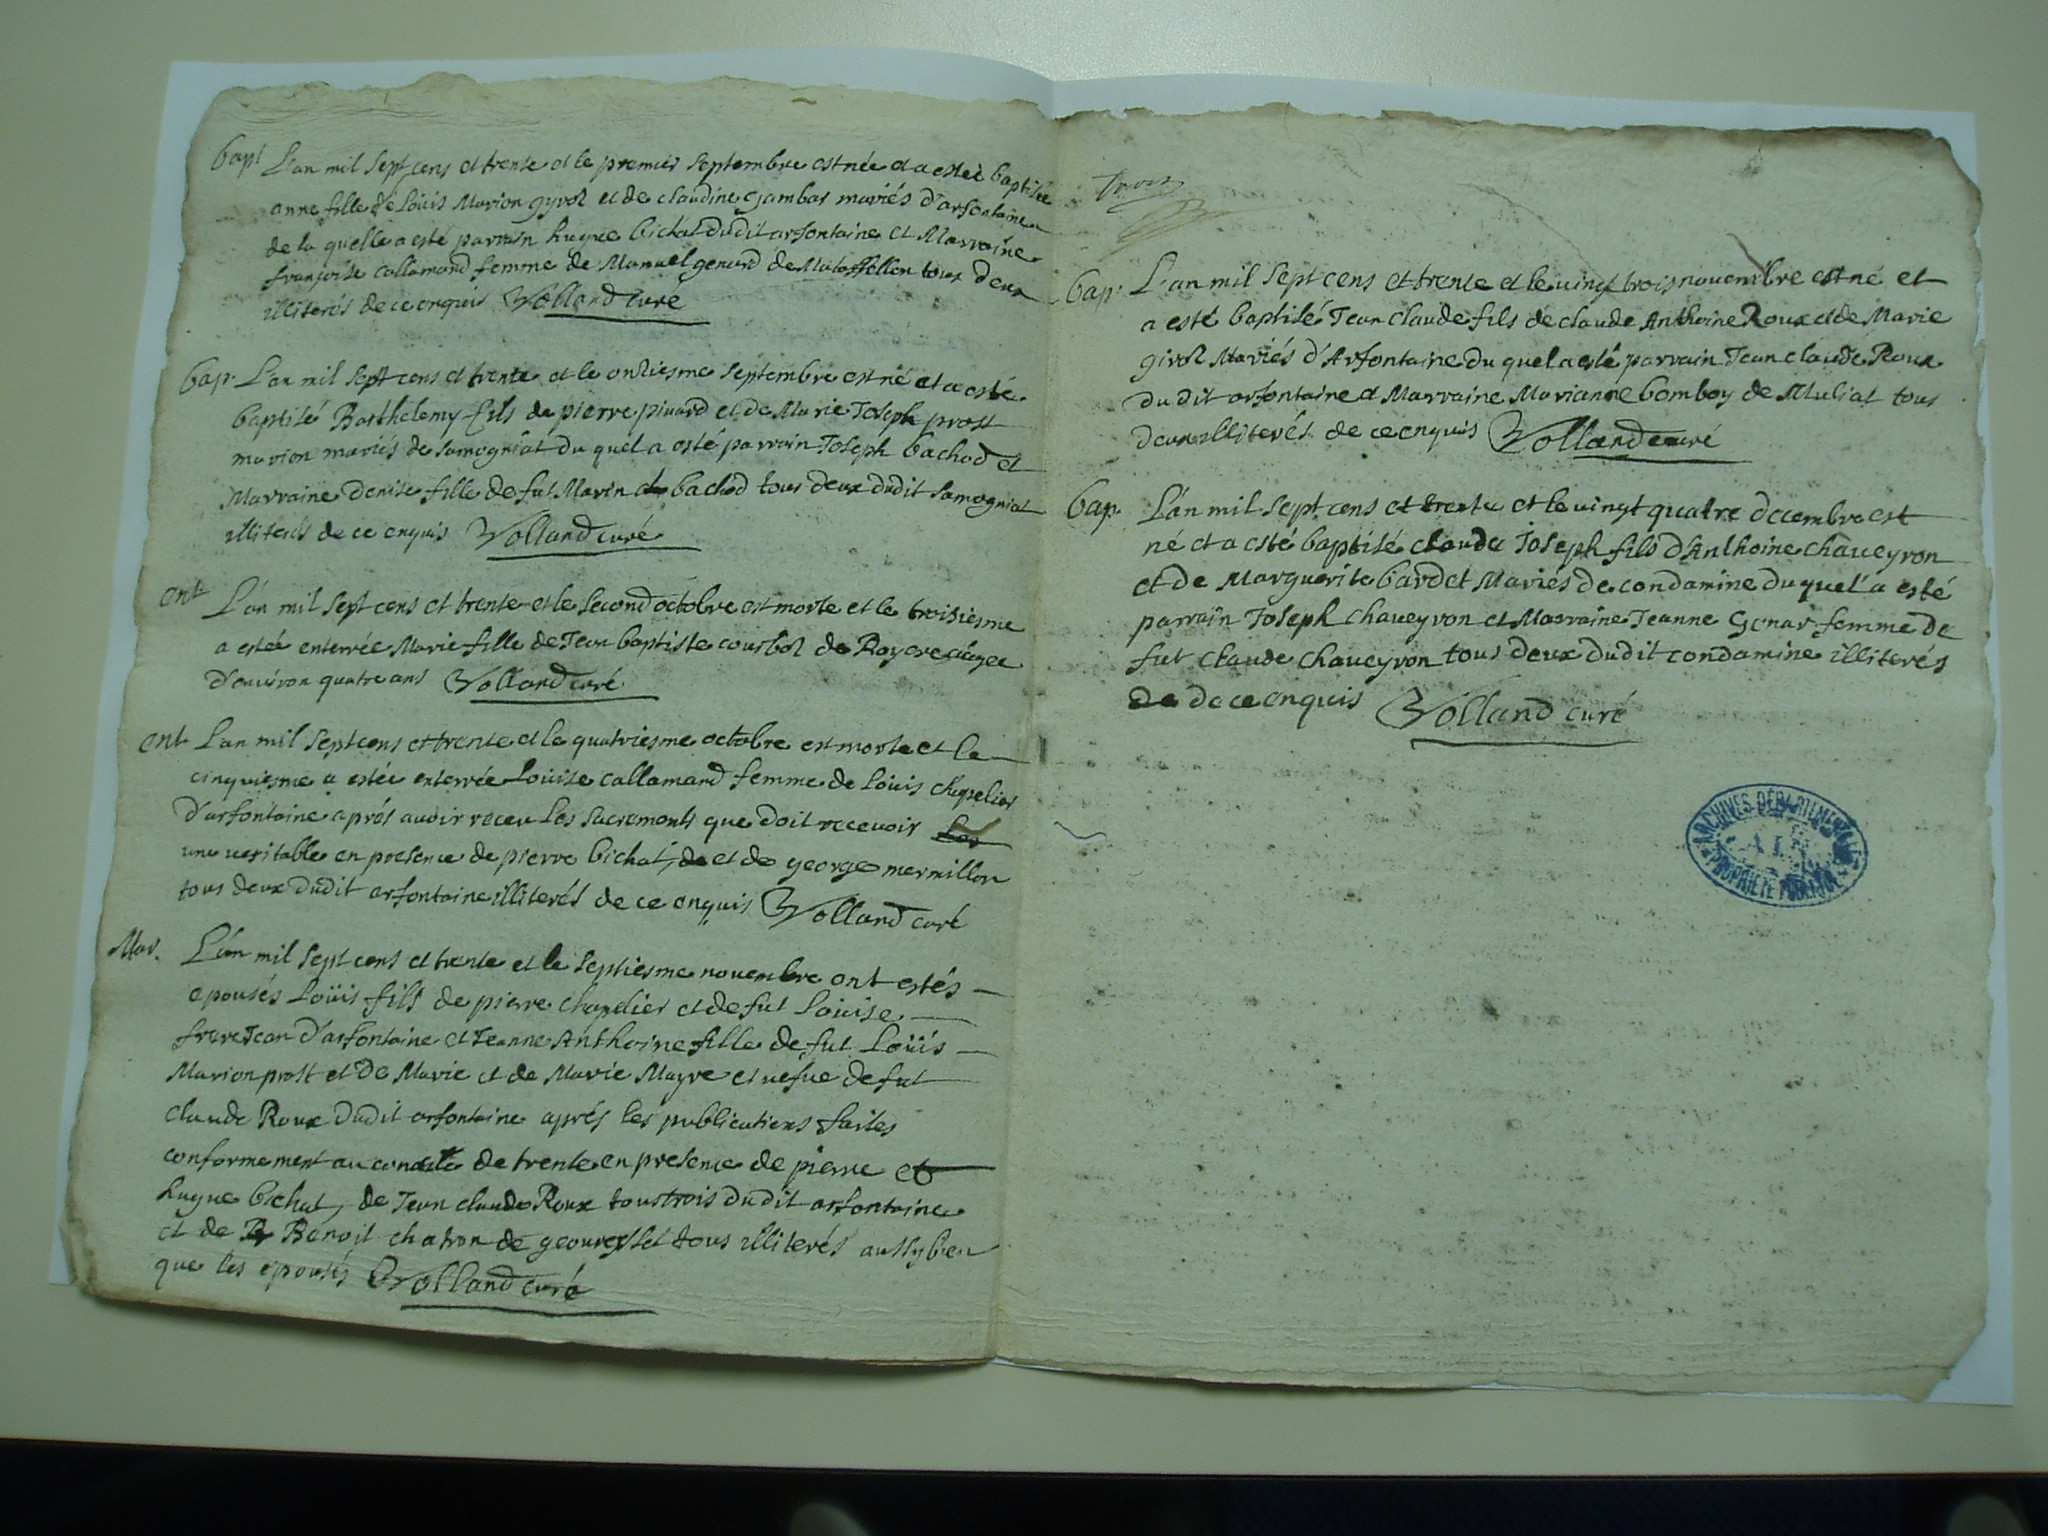 bapt L'an mil sept cens et trente et le premier septembre est née et a estée baptisée
anne fille de Loüis Marion gyrod et de claudine gambas mariés d'arfontaine
de la quelle a esté parrain hugue bichat dudit arfontaine et Marraine
françoise callamand femme de Manuel genard de Matafellon tous deux
illiterés de ce enquis Volland curé
bap. L'an mil sept cens et trente et le onziesme septembre est né et a esté
baptisé Barthelemy fils de pierre pivard et de Marie Joseph prost
marion mariés de samogniat du quel a esté parrain Joseph bachod et
Marraine denise fille de fut Marin bachod tous deux dudit samogniat
illiterés de ce enquis Volland curé
ent L'an mil sept cens et trente et le second octobre est morte et le troisiesme
a estée enterrée Marie fille de Jean baptiste courbol de agée
d'environ quatre ans Volland curé
ent L'an mil sept cens et trente et le quatriesme octobre est morte et le
cinquiesme a estée enterrée Loüise callamand femme de Loüis chapelier
d'arfontaine aprés avoir receu les sacrements que doit recevoir les
une veritable en presence de pierre bichat, de et de george mermillon
tous deux dudit arfontaine illiterés de ce enquis Volland curé
Mar. L'an mil sept cens et trente et le septiesme novembre ont estés
epousés Loüis fils de pierre chapelier et de fut Loüise
frerejean d'arfontaine et Jeanne Anthoine fille de fut Loüis
Marion prost et de Marie et de Marie Mayre et vefue de fut
claude Roux dudit arfontaine aprés les publications faites
conformement au concile de trente en presence de pierre et
hugue bichat, de Jean claude Roux tous trois dudit arfontaine
et de B Benoit chatron de geovresset tous illiterés aussy bien
que les epousés Volland curé
Trois
bap. L'an mil sept cens et trente et le vingt trois novembre est né et
a esté baptisé Jean claude fils de claude Anthoine Roux et de Marie
girod Mariés d'Arfontaine du quel a esté parrain Jean claude Roux
dudit arfontaine et Marraine Marianne bomboy de Muliat tous
deux illiterés de ce enquis Volland curé
bap. L'an mil sept cens et trente et le vingt quatre decembre est
né et a esté baptisé claude Joseph fils d'Anthoine chaveyron
et de Marguerite bardet Mariés de condamine du quel a esté
parrain Joseph chaveyron et Marraine Jeanne Genar femme de
fut claude chaveyron tous deux dudit condamine illiterés
de de ce enquis Volland curé
ARCHIVES DÉPARTEMENTALES
AIN
PROPRIÉTÉ PUBLIQUE